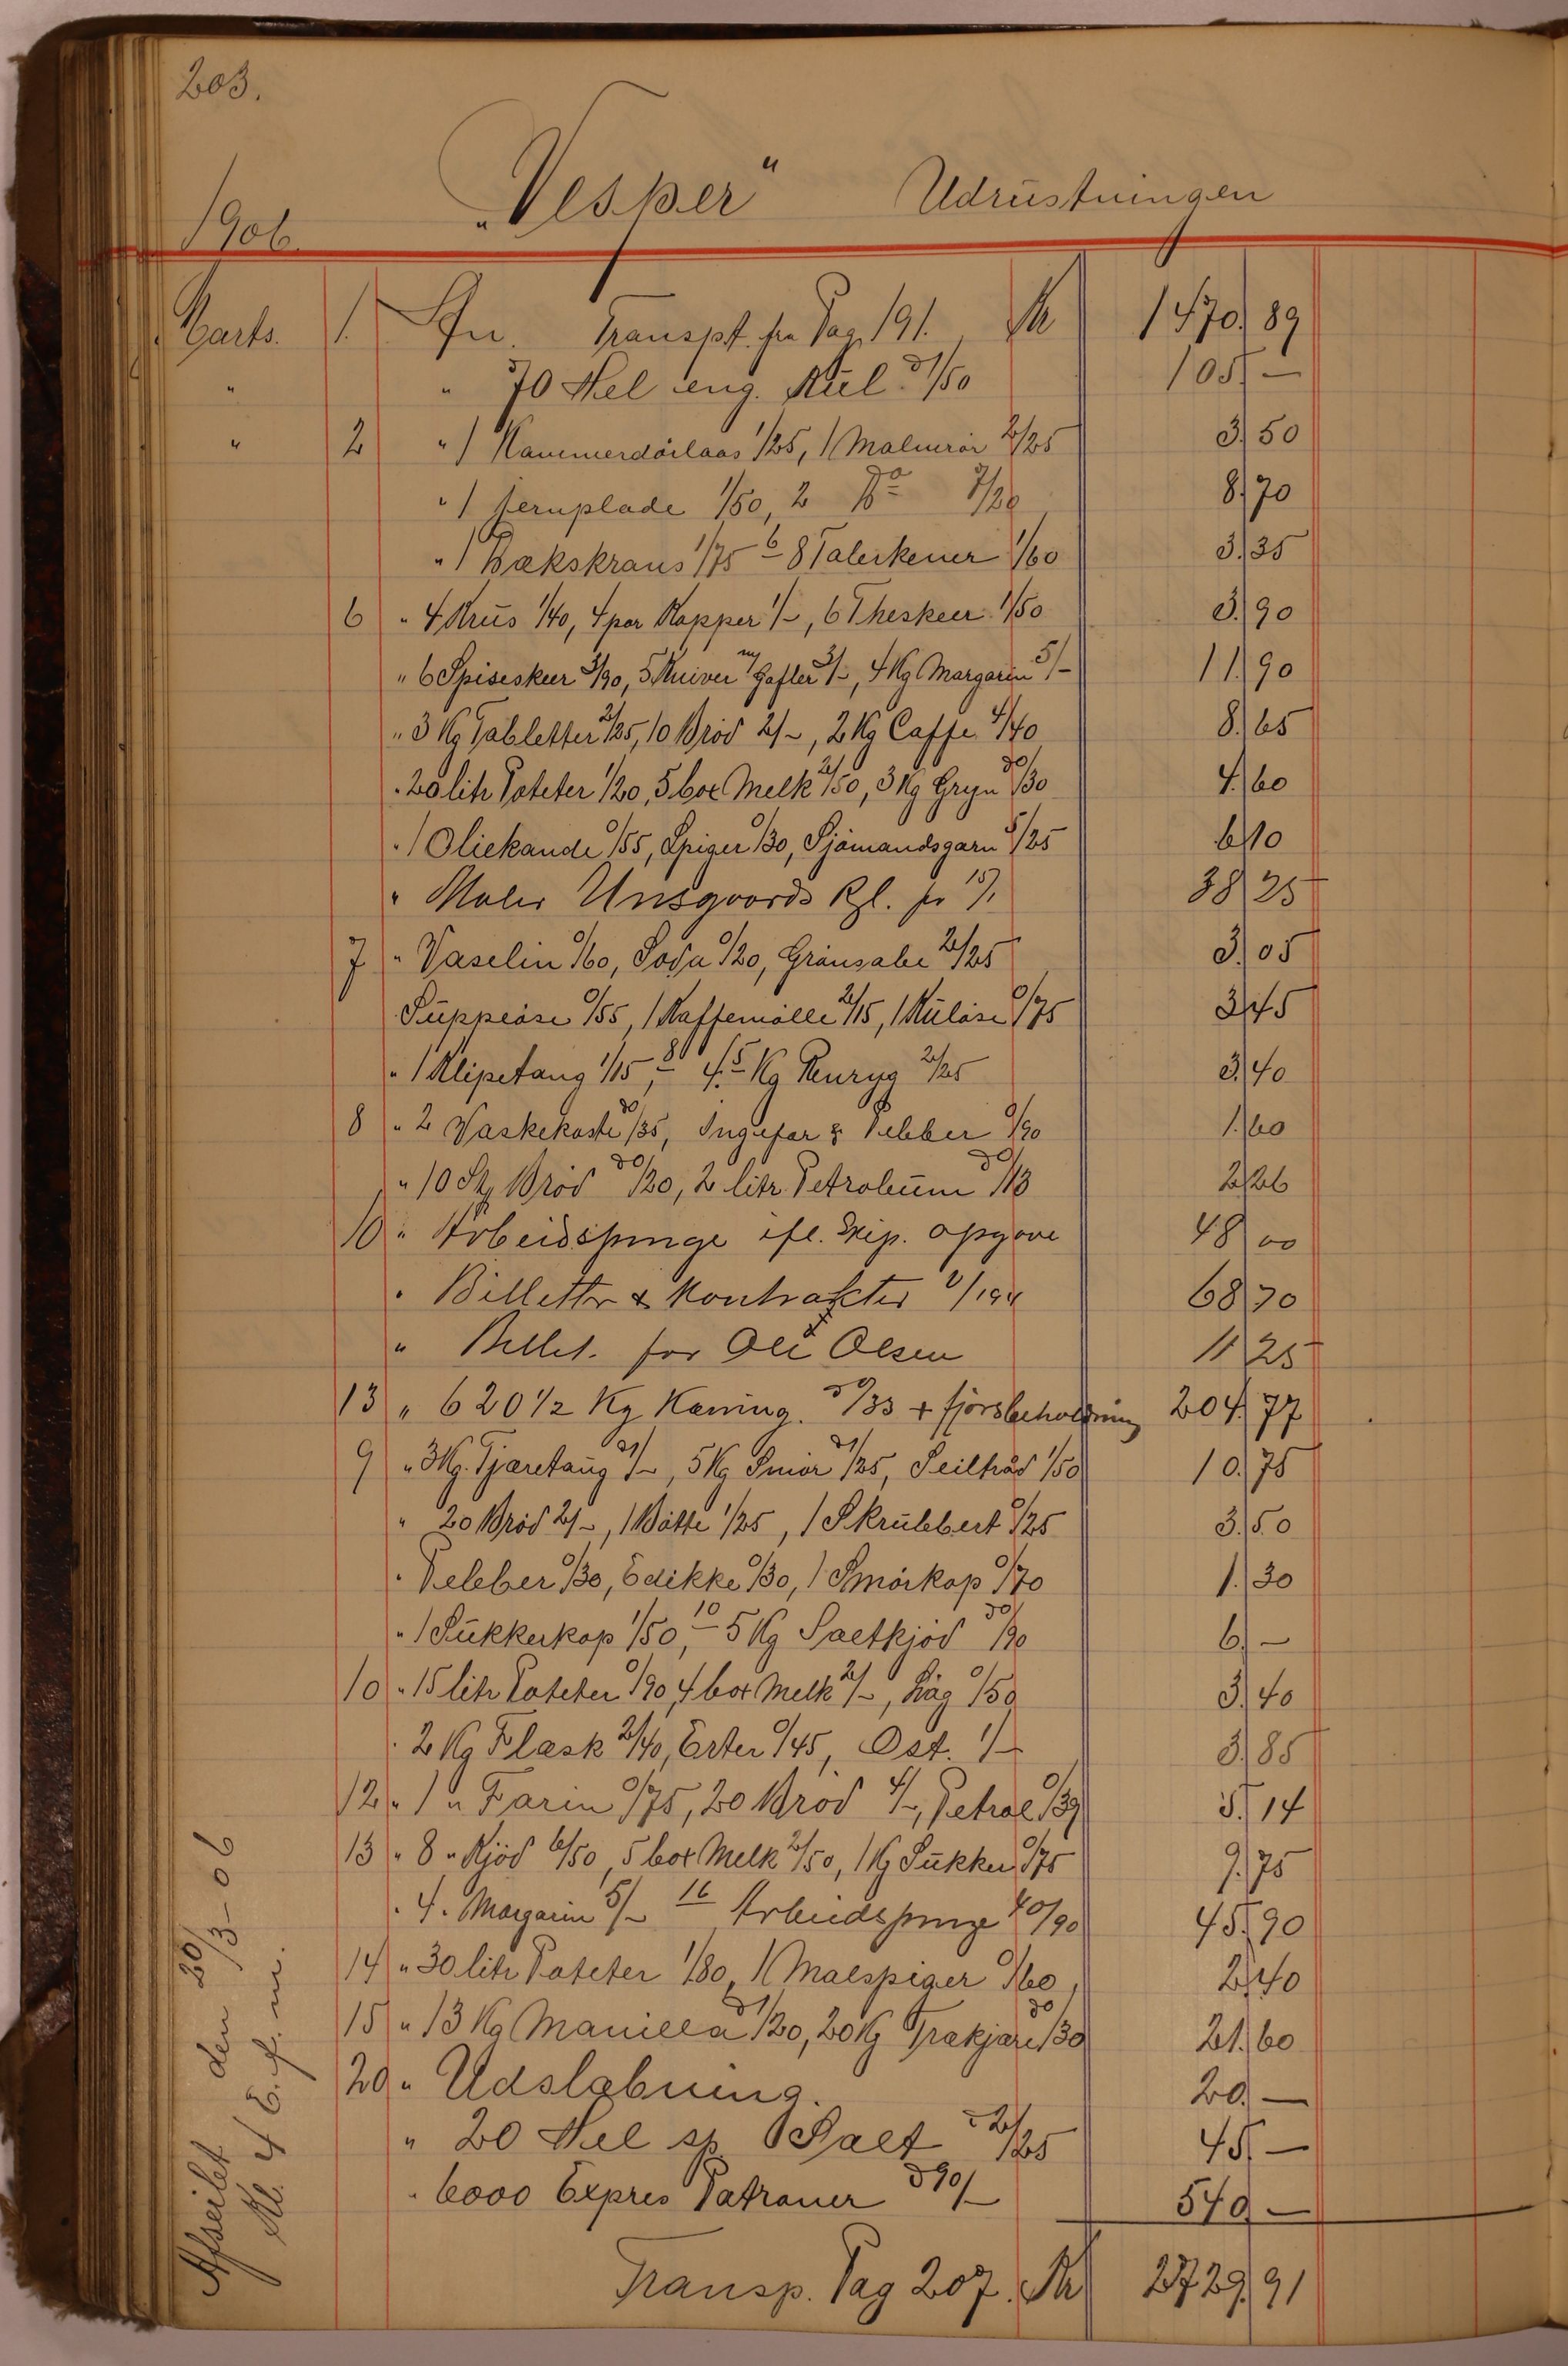 203.
1906. "Vesper" Udrustningen
Marts. 1. An. Transpt. fra Pag. 191. Kr 1470.89
" " 70 Hel eng. Kul à 1/50 105.–
" 2 " 1 Kammerdörlaas 1/25, 1 Malmrör 2/25 3.50
" 1 Jernplade 1/50, 2 Do 7/20 8.70
" 1 Bakskrans 1/75 6 - 8 Talerkener 1/60 3.35
6 " 4 Krus 1/40, 4 par Kopper 1/-, 6 Theskeer 1/50 3.90
" 6 Spiseskeer 3/90, 5 Kniver m/ Gafler 3/-, 4 Kg Margarin 5/- 11.90
" 3 Kg Tabletter 2/25, 10 Bröd 2/-, 2 Kg Caffe 4/40 8.65
" 20 litr Poteter 1/20, 5 box Melk 2/50, 3 Kg Gryn do/30 4.60
" 1 Oliekande 0/55, Spiger 0/30, Sjömandsgarn 5/25 6.10
" Maler Unsgaards Rgl. pr 15/1 38.25
7 " Vaselin 0/60, Soda 0/20, Grönsabe 2/25 3.05
Suppeöse 0/55, 1 Kaffemölle 2/15, 1 Kulöse 0/75 3.45
" 1 Klipetang 1/15, 8 - 4.5 Kg Renryg 2/25 3.40
8 " 2 Vaskekoste do/35, Ingefær & Pebber 0/90 1.60
" 10 Stk Bröd do/20, 2 litr. Petroleum do/13 2.26
10 " Arbeidspenge ifl. Skip. opgave 48.00
" Billetter & Kontrakter 68.70
" Billet. for Ole Olsen 11.25
13 " 620 1/2 Kg Kavring. do/33 + fjorsbeholdning 204.77
9 " 3 Kg. Tjæretaug à 1/-, 5 Kg Smör à 1/25, Seiltråd 1/50 10.75
" 20 Bröd 2/-, 1 Bötte 1/25, 1 Skrubbert 0/25 3.50
" Pebber 0/30, Edikke 0/30, 1 Smörkop 0/70 1.30
" 1 Sukkerkop 1/50, 10 - 5 Kg Saltkjöd do/90 6.–
10 " 15 litr Poteter 0/90, 4 box Melk 2/-, Läg 0/50 3.40
" 2 Kg Flæsk 2/40, Erter 0/45, Ost. 1/- 3.85
12 " 1 " Farin 0/75, 20 Bröd 4/-, Petrol 0/39 5.14
13 " 8 " Kjöd 6/50, 5 box Melk 2/50, 1 Kg Sukker 0/75 9.75
" 4 " Margarin 5/- 16 Arbeidspenge 40/90 45.90
14 " 30 litr Poteter 1/80, 1 K Malspiger 0/60 2.40
15 " 13 Kg Manilla à 1/20, 20 Kg Trækjære do/30 21.60
20 " Udslæbning. 20.–
" 20 Hel sp. Salt à 2/25 45.–
" 6000 Expres Patroner à 90/- 540.–
Transp. Pag 207. Kr 2729.91
Afseilet den 20/3-06
Kl. 4 E. f. m.